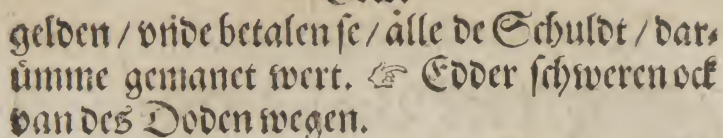 gelden / vnde betalen se / alle de Schuldt / dar-
ümme gemanet wert. ☞ Edder schweren ock
van des Doden wegen.